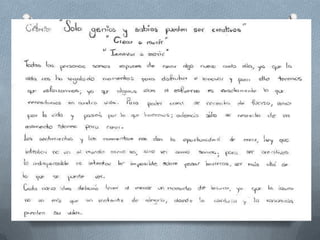 Criterio: "Solo genios y sabios pueden ser creativos"
"Crear o morir"
"Innovar o morir"
Todas las personas somos capaces de crear algo nuevo cada día, ya que la
vida nos ha regalado momentos para disfrutar e innovar y para ello tenemos
que esforzarnos, ya que algunas veces el esfuerzo es exactamente lo que
necesitamos en nuestra vida. Para poder crear se necesita de fuerza, amor
por la vida y pasión por lo que hacemos; además sólo se necesita de un
momento para crear.
Los sentimientos y los momentos nos dan la oportunidad de crear, hay que
en el mundo como es, sino ver como somos; para ser creativos
lo indispensable es intentar lo imposible, soñar, pasar barreras, ser más allá de
lo que se puede ver.
Cada niño debería tener al menos un momento de locura, ya que la locura
no es más que un instante de alegría, donde la conciencia y la
pierden su valor.